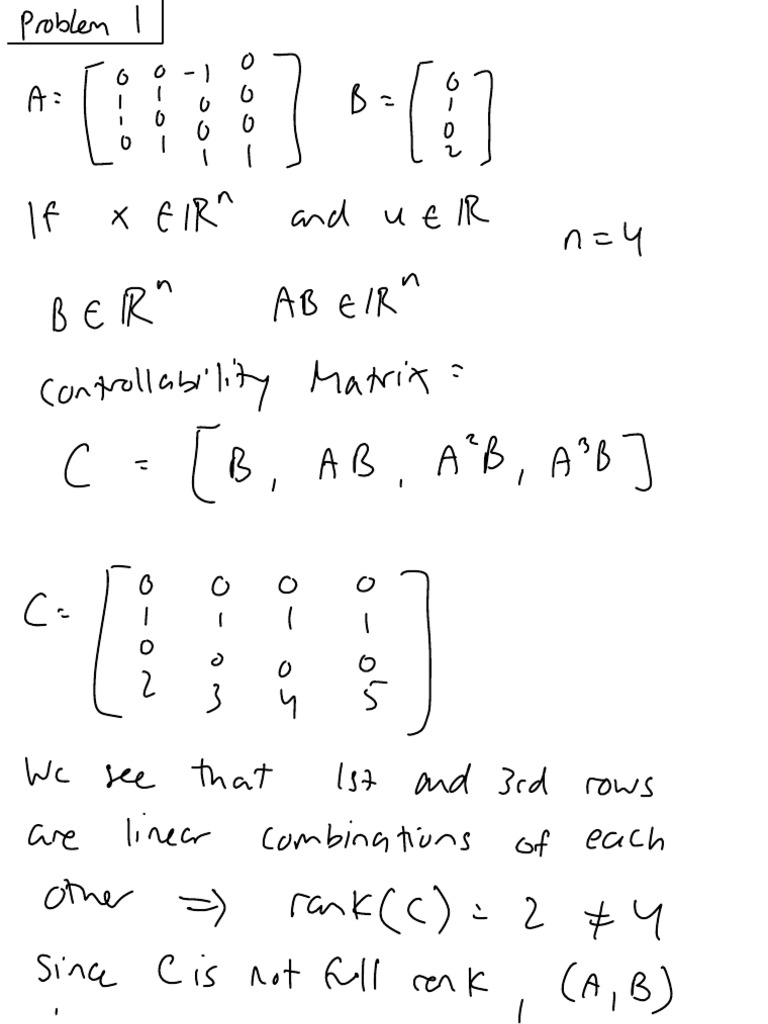 Problem 1
A = [ 0 0 -1 0 B = [ 0
1 1 0 0 1
1 0 0 0 0
0 1 1 1 ] 2 ]
If x ∈ ℝⁿ and u ∈ ℝ n = 4
B ∈ ℝⁿ AB ∈ ℝⁿ
Controllability Matrix =
C = [ B, AB, A²B, A³B ]
C = [ 0 0 0 0
1 1 1 1
0 0 0 0
2 3 4 5 ]
We see that 1st and 3rd rows
are linear combinations of each
other ⇒ rank(C) = 2 ≠ 4
Since C is not full rank, (A, B)